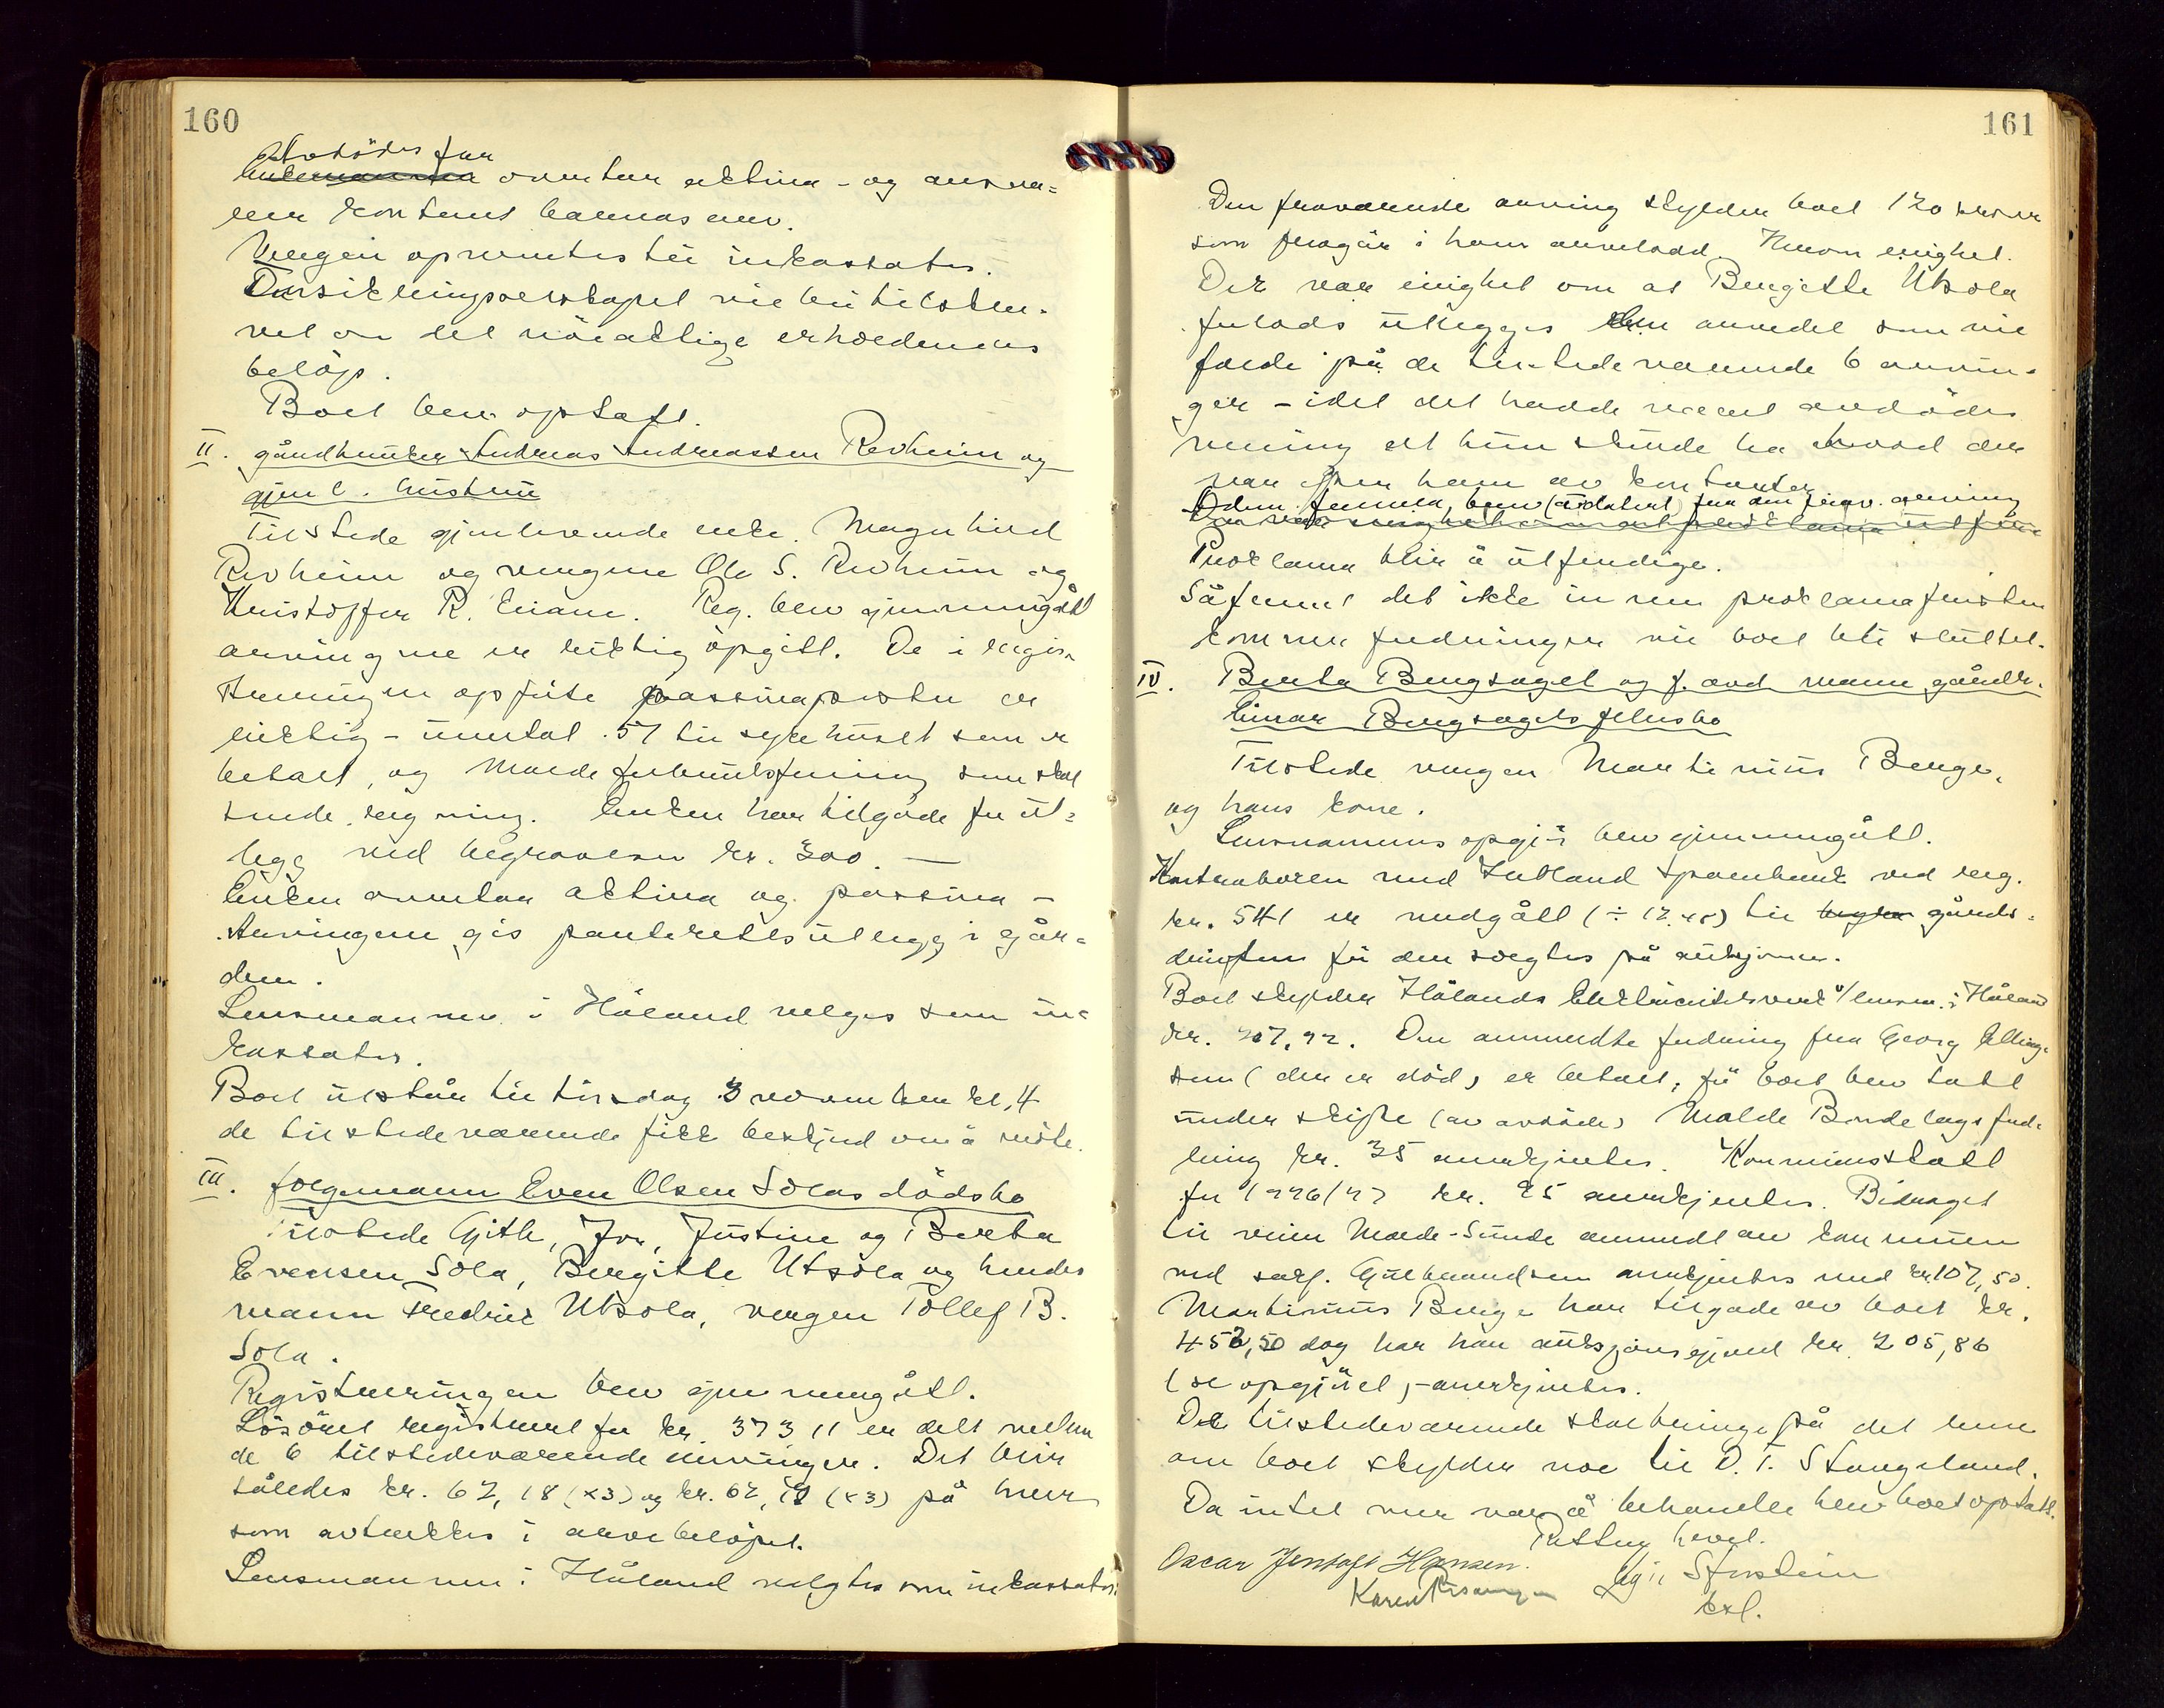 160
Avdødes far
Enkemannen overtar aktiva - og ansva-
rer kontant barnas arv.
Vergen opnevntes til inkassator.
Forsikringsselskapet vil bli tilskre-
vet om det nøiaktige erholdenens
beløp.
Boet blev opptatt.
II. gårdbruker Andreas Andreassen Revheim og
gjenl. hustru
Tilstede gjenlevende enke Magnhild
Revheim og vergene Ole S. Revheim og
Kristoffer R. Eiane. Reg. blev gjennemgått
arvingene er riktig opgitt. De i regis-
treringen opførte passivaposter er
riktig - unntat 57 til sykehuset som er
betalt, og Malde forbruksforening som skal
sende regning. Enken har tilgode for ut-
legg ved begravelsen kr. 300. —
Enken overtar aktiva og passiva -
Arvingene gis panterettsutlegg i går-
den.
Lensmannen i Håland velges som in-
kassator.
Boet utstår til tirsdag 3 november kl. 4
de tilstedeværende fikk beskjed om å møte.
III. forgmann Even Olsen Solas dødsbo
Tilstede Gitle, Jon, Justine og Berta
Evensen Sola, Bergitte Utsola og hendes
mann Fredrik Utsola, vergen Tollef B.
Sola.
Registreringen blev gjennemgått.
Løsøret registrert for kr. 373 11 er delt mellem
de 6 tilstedeværende arvinger. Det blir
således kr. 62,18 (x3) og kr. 62,19 (x3) på hver
som avtrekkes i arvebeløpet.
Lensmannen i Håland velgtes som inkassator.
161
Den fraværende arving skylder boet 120 kroner
som fragår i hans arvelodd. Herom enighet.
Det var enighet om at Bergitte Utsola
forlods utlegges den arvedel som vil
falde på de tilstedeværende 6 arvin-
ger - idet det hadde været avdødes
mening at hun skulde ha hvad der
var efter ham av kontanter
Odem. fremla brev (udatert) fra den frav. arving
Proklama blir å utferdige.
Såfremt det ikke innen proklamafristen
kommer fordringer vil boet bli sluttet.
IV. Berta Bergsaget og f. avd. mann gårdbr.
Einar Bergsagets fellesbo
Tilstede vergen Martinius Berge,
og hans kone.
Lensmannens opgjør blev gjennemgått.
Kontraboken med Jutland Sparebank ved reg.
kr. 541 er medgått (÷ 12.48) til gårds-
driften før den solgtes på auksjonen.
Boet skylder Hålands Elektricitetsverk v/ lensm. i Håland
kr. 307,92. Den anmeldte fordring fra Georg Elling-
sen (den er død) er betalt, før boet blev tatt
under skifte (av avdøde) Malde Bondelags ford-
ring kr. 35 anerkjentes. Kommuneskatt
for 1926/27 kr. 25 anerkjentes. Bidraget
til veien Malde-Sunde anmeldt av kommunen
ved sakf. Gulbrandsen anerkjentes med kr 107,50.
Martinius Berge har tilgode av boet kr.
452,50 dog har han auksjonsgjeld kr. 205,86
(se opgjøret) - anerkjentes.
De tilstedeværende på det rene
om boet skylder noe til O. T. Stangeland.
Da intet mer var å behandle blev boet optatt.
Retten hevet.
Oscar Jentoft Hansen. Storstein
Karen kxf.